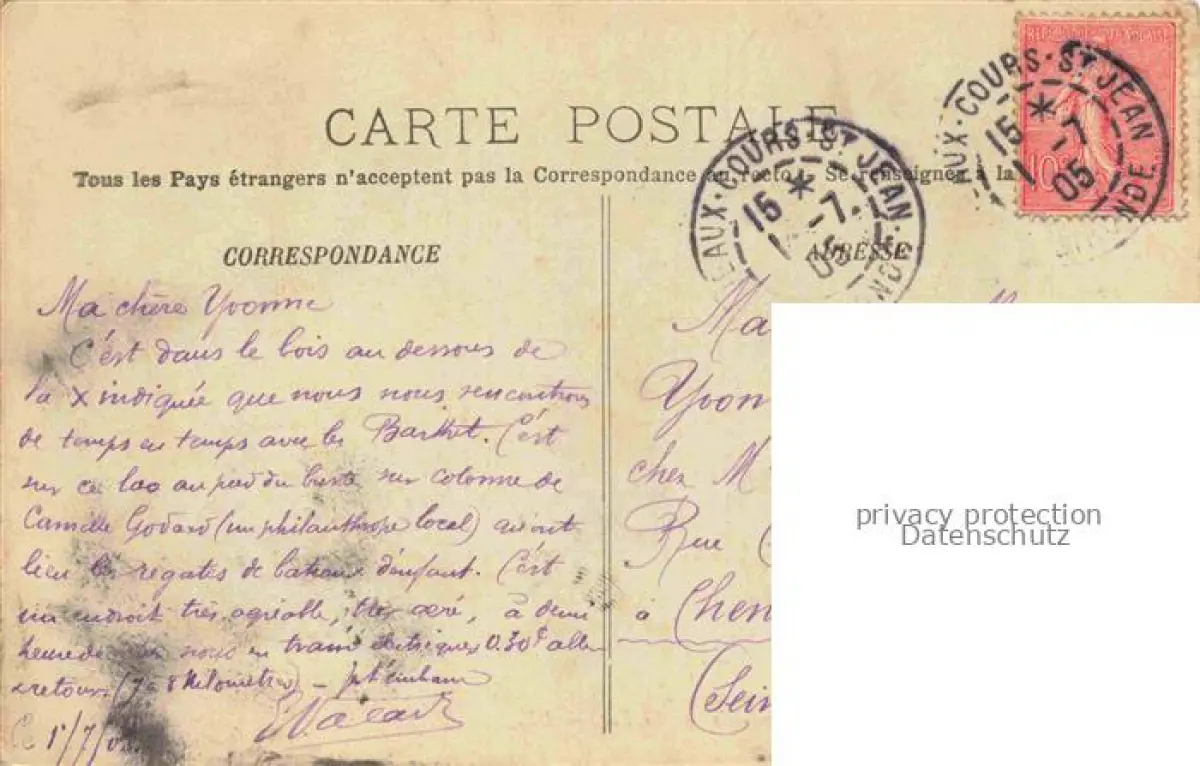 RÉPUBLIQUE FRANÇAISE
10
EAUX-COURS-St JEAN
15 * -7 -05
NDE
CARTE POSTALE
Tous les Pays étrangers n'acceptent pas la Correspondance au recto. - Se renseigner à la
EAUX-COURS-St JEAN
15 * -7 -05
NDE
CORRESPONDANCE
Ma chère Yvonne
C'est dans le bois au dessous de
la X indiquée que nous nous rencontrons
de temps en temps avec les Barthet. C'est
sur ce lac au pied du buste sur colonne de
Camille Godard (un philanthrope local) qu'ont
lieu les régates de bateaux d'enfant. C'est
un endroit très agréable, très aéré, à demi
heure de nous en tram électriques 0.30c aller
retour (7 à 8 kilomètres) -
15/7/05
ADRESSE
Ma
Yvon
chez M
Rue
à Chen
(Sein
privacy protection
Datenschutz